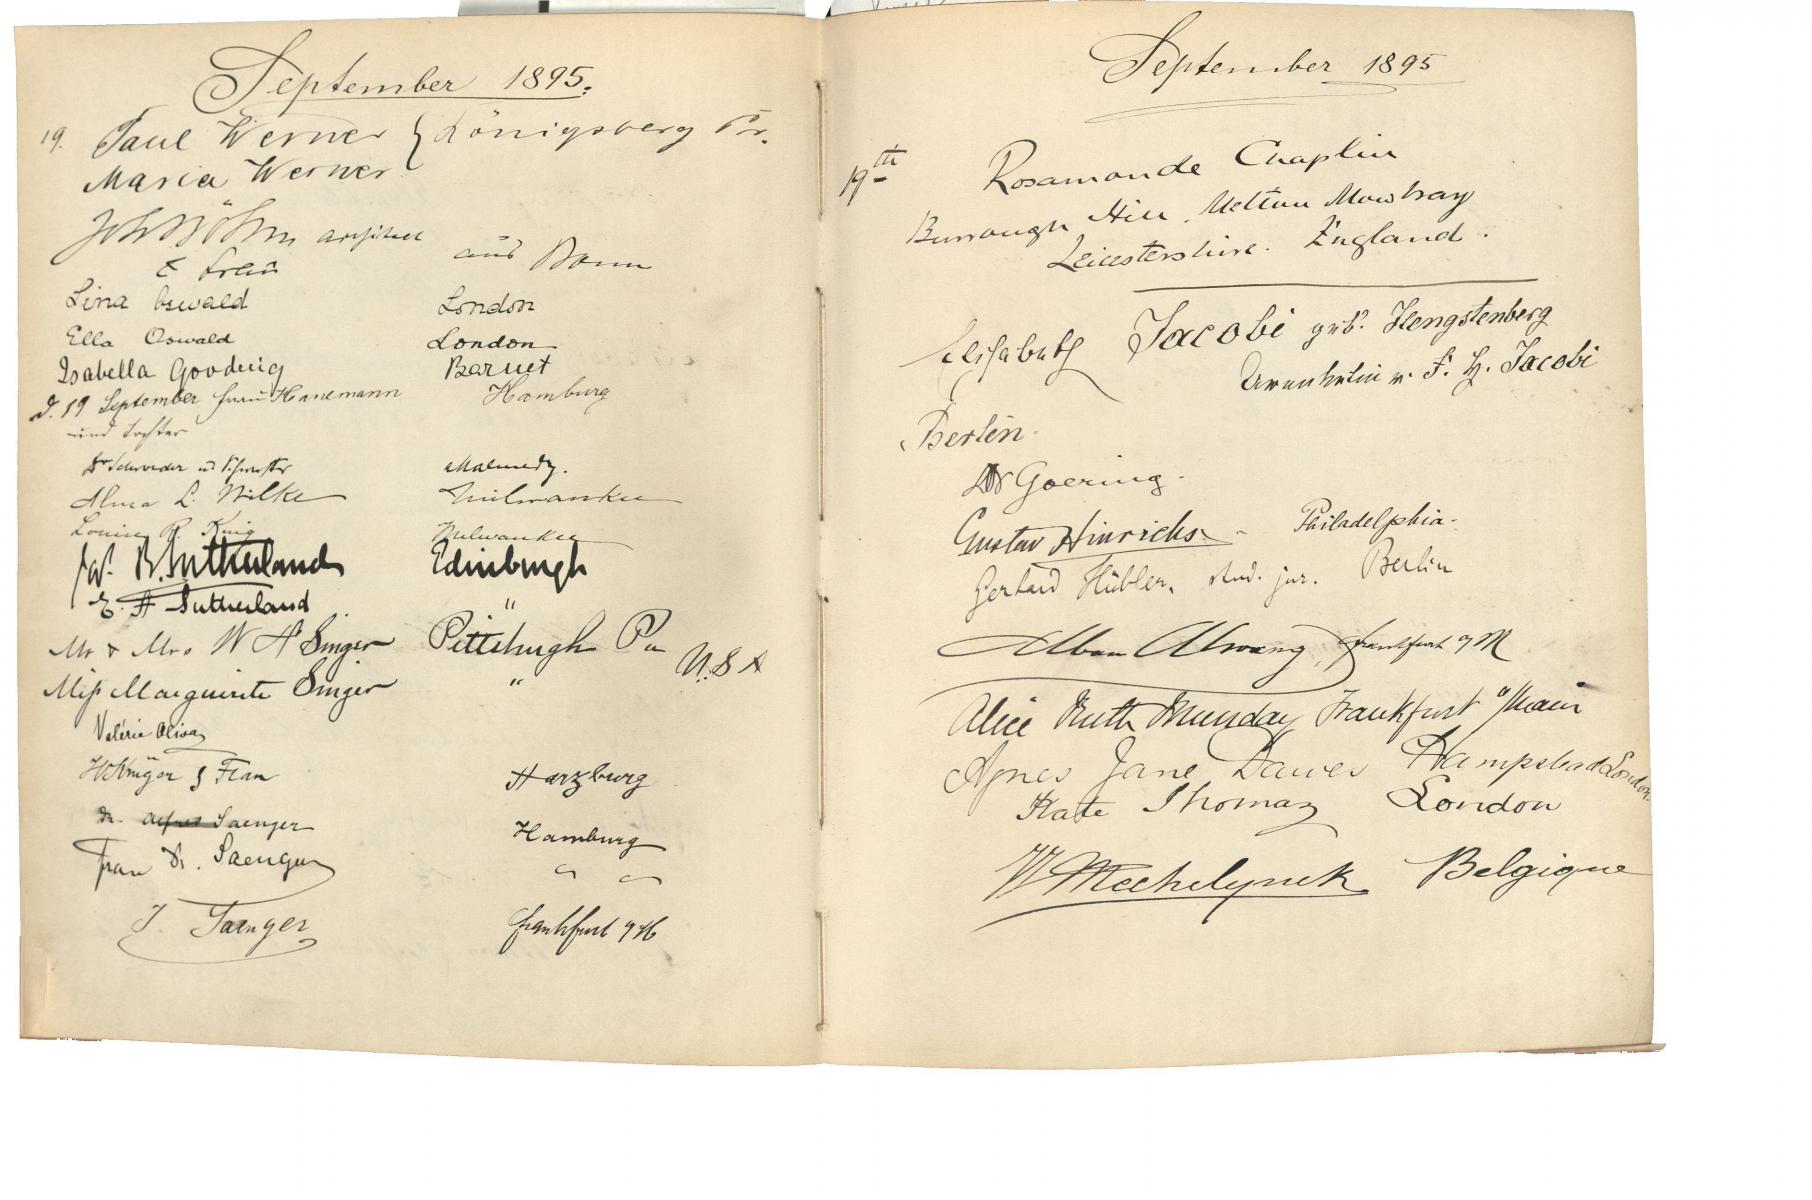 September 1895.
19. Paul Werner } Königsberg Pr.
Maria Werner
Architect aus Bonn
& Frau
Lina Oswald London
Ella Oswald London
Isabella Gooding Barnet
d. 19 September Frau Hanemann Hamburg
und Tochter
Dr Schroeder u Schwester Malmedy.
Alma L. Wilke Milwaukee
Louise R. King Milwaukee
W. B. Sutherland Edinburgh
E. A Sutherland "
Mr & Mrs W H Singer Pittsburgh Pa U.S.A
Miss Marguerite Singer "
Valérie Olisa
H Krüger & Frau Harzburg
Dr. Saenger Hamburg
Frau Dr. Saenger " "
J. Saenger Frankfurt a/M
September 1895
19th Rosamonde Chaplin
Burrough Hill, Melton Mowbray
Leicestershire. England.
Elisabeth Jacobi geb. Hengstenberg
Urenkelin v. F. H. Jacobi
Berlin
Dr Goering.
Gustav Hinrichs - Philadelphia.
Gerhard Hübler, stud. jur. Berlin
Frankfurt a/M
Alice Ruth Munday Frankfurt a/Main
Agnes Jane Dawes Hampstead London.
Kate Thomas London
W Mechelynck Belgique